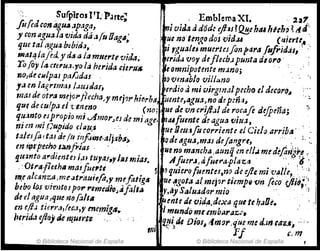 Suspiros I'I. Parte;
fu sed con agua apaga,
y con agua la vida dà a su llaga;
que tal agua bebida,
mata la sed, y da a la muerte vida.
To soy la cierva, yo la herida cierva
no, de culpas passadas
ya en lagrimas lavadas,
mas de otra mejor flecha, y mejor hierba,
que de culpa el veneno
quanto es propio mi Amor, es de mi agen
ni en mi Cupido clava
tales factas de su infame aljaba,
en que pecho tan frias
quanto ardientes las tuyas, y las mias.
Otra flecha mas fuerte
me alcanza, me atraviesa, y me fatiga
bebo los vientos por remedio, à falta
de el agua, que no falta
en esta tierra seca, y enemiga.
herida estoy de muerte
Emblema XI. 227
mi vida à dòde estas! Que has hecho? Ad
que no tengo dos vidas (vierte,
ni yguales muertes son para sufridas,
herida voy de flecha punta de oro
de omnipotente mano;
no venable villano
perdio à mi virginal pecho el decoro,
fuente, agua, no de peña,
que de cristal de roca se despeña;
la fuente de agua viva,
que Dios su corriente el Cielo arriba
no de agua, mas de sangre,
que no mancha, aunque en ella me desangre,
A fuera, à fuera plaza
quiero fuentes, no de este mi valle,
que agota al mejor tiempo un seco estio,
ay Salvador mio
fuente de vida, dexa que te halle.
el mundo me embaraza
qui de Dios, Amor, que me dan caza,
Ff c. m
© Biblioteca Nacional de España
© Biblioteca Nacional de España